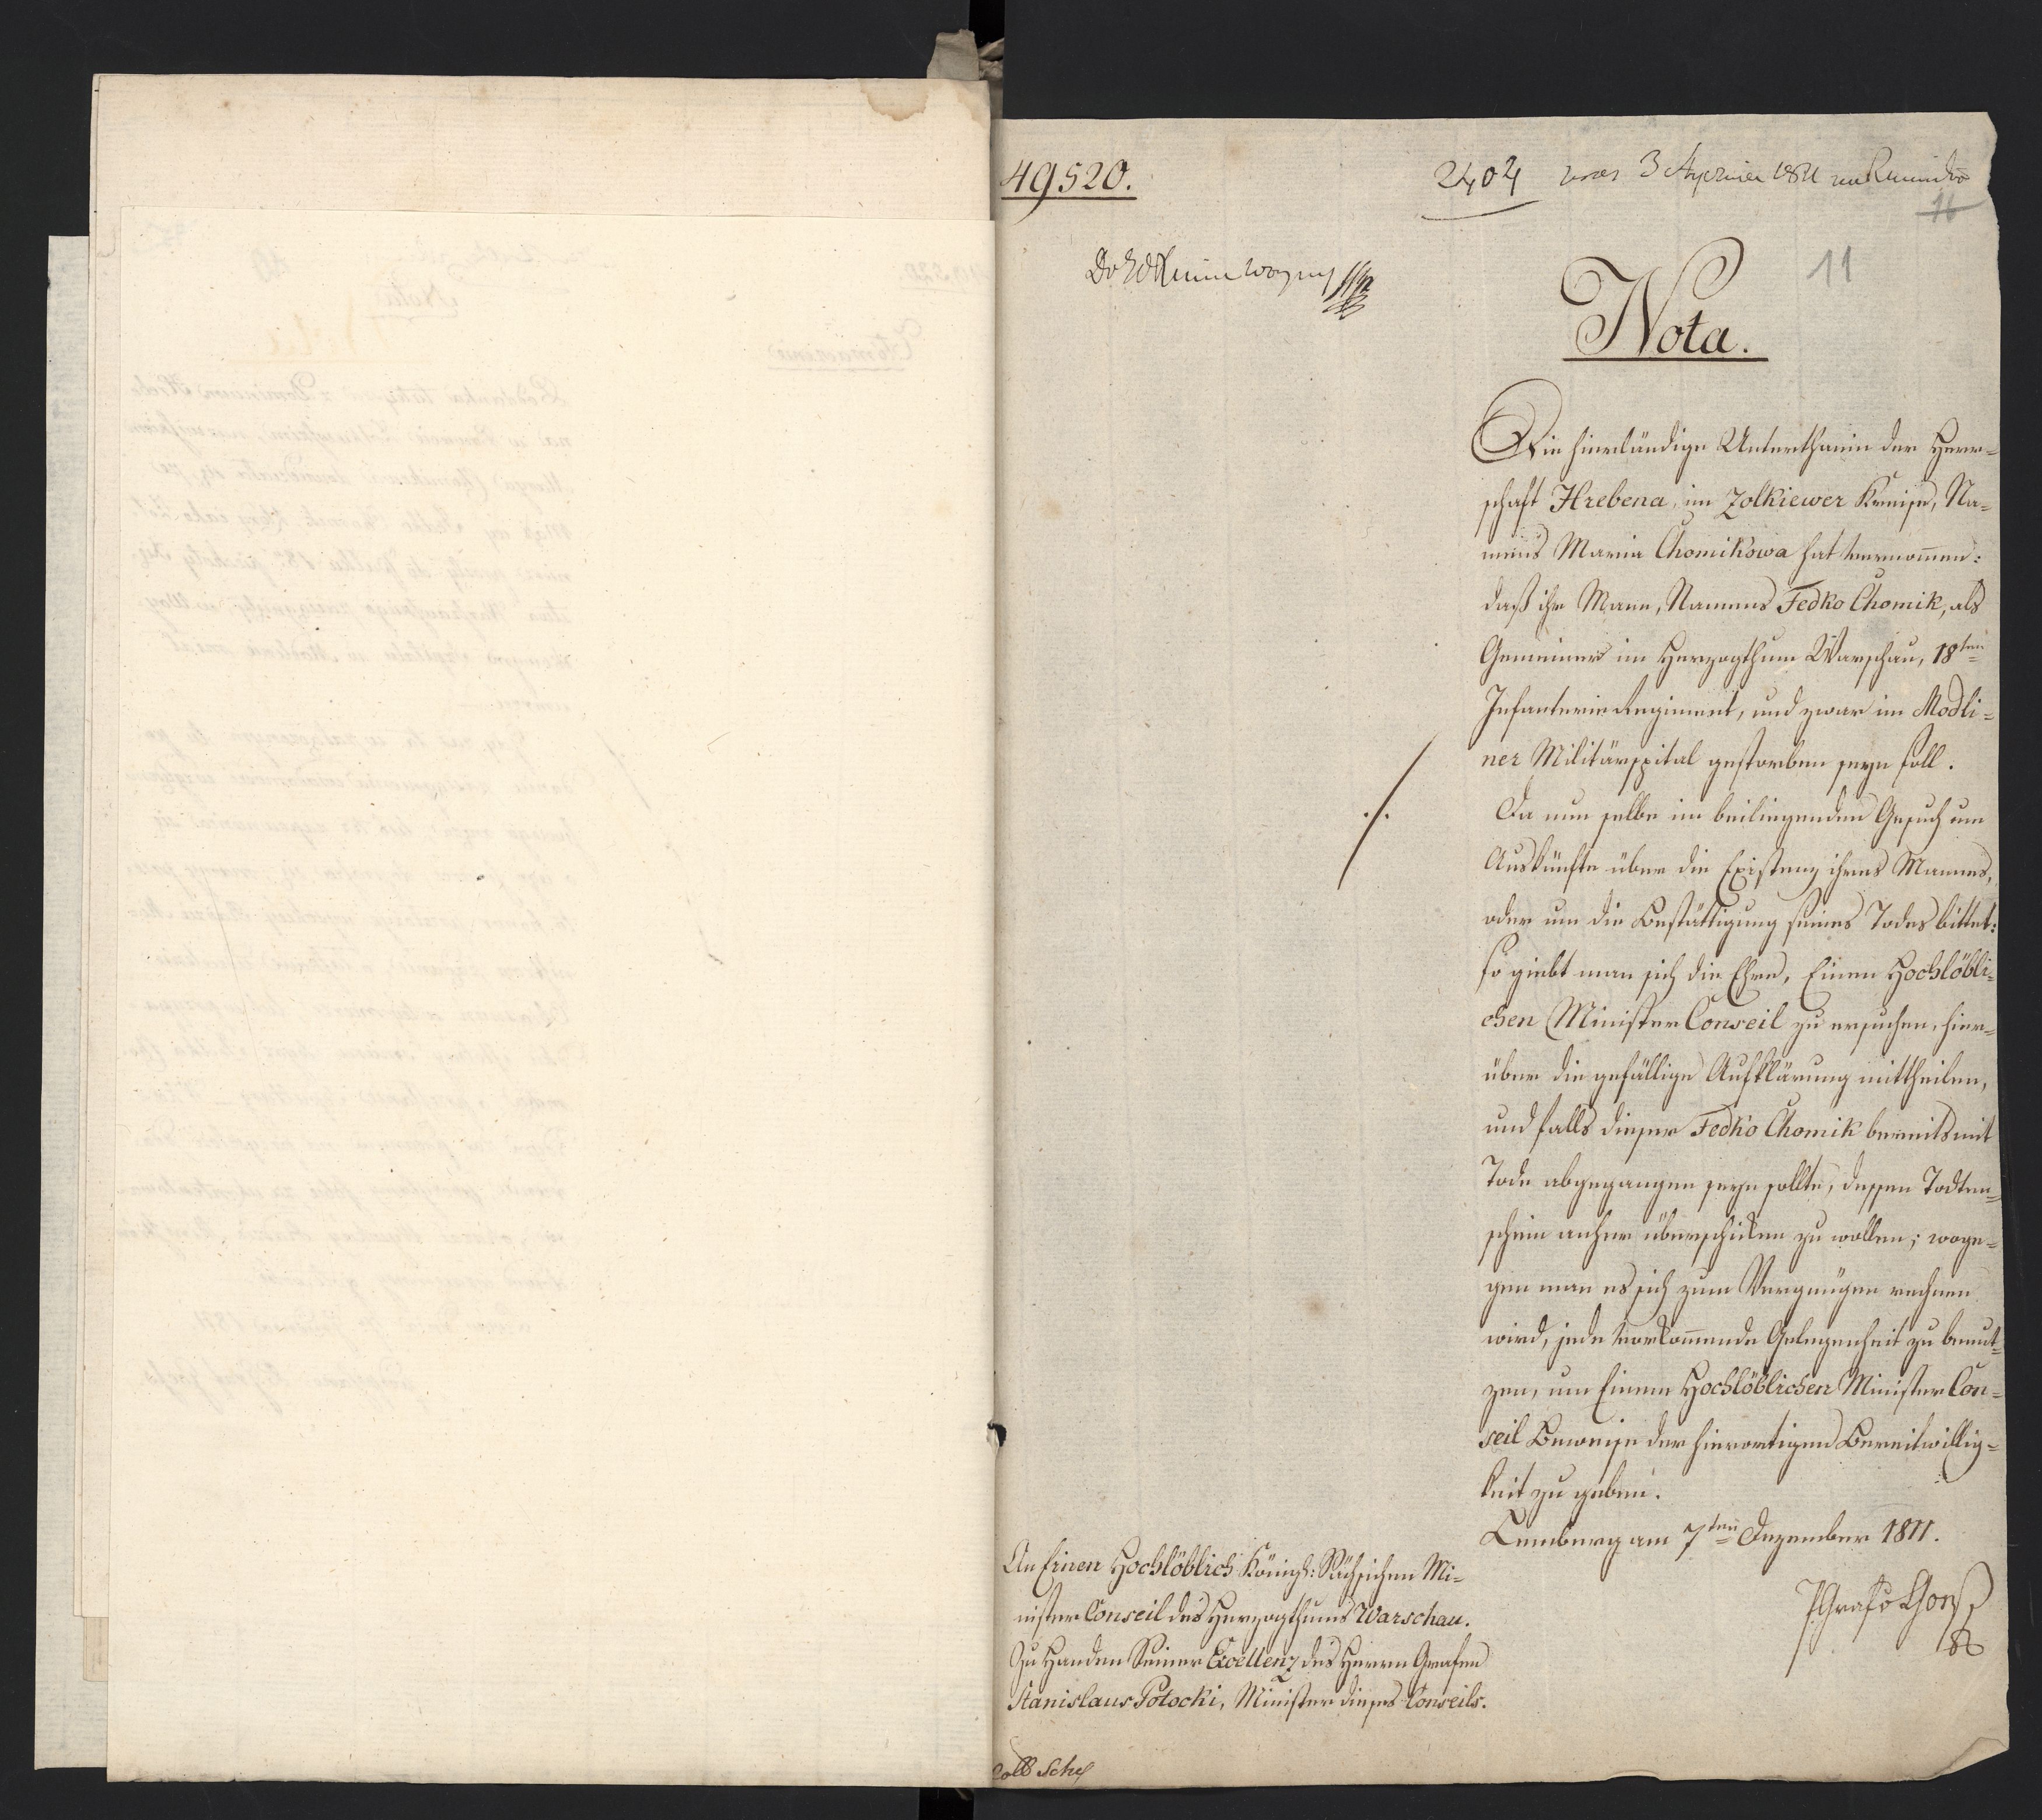 49520.
2404
11
16
Nota.
Die hierländige Unterthanin der Herr=
schaft Hrebena, im Zolkiewer Kreise, Na=
mens Maria Chomikowa hat vernomen:
daß ihr Mann, Namens Fedko Chomik, als
Gemeiner im Herzogthum Warschau, 18ten
Infanterie Regiment, und zwar im Modli=
ner Militärspital gestorben seyn soll.
./.
Da nun selbe im beiliegenden Gesuch um
Auskünfte über die Existenz ihres Mannes,
oder um die Bestättigung seines Todes bittet:
so giebt man sich die Ehre, Einen Hochlöbli=
chen Minister Conseil zu ersuchen, hier=
über die gefällige Aufklärung mittheilen,
und falls dieser Fedko Chomik bereits mit
Tode abgegangen seyn sollte, dessen Todten=
schein anher überschicken zu wollen; woge=
gen man es sich zum Vergnügen rechnen
wird, jede vorkomende Gelegenheit zu benut=
zen, um Einem Hochlöblichen Minister Con=
seil Beweise der hierortigen Bereitwillig=
keit zu geben.
Lemberg am 7ten Dezember 1811.
An Einen Hochlöblich Königl: Sächsischen Mi=
nister Conseil des Herzogthums Warschau.
Zu Handen Seiner Excellenz des Herrn Grafen
Stanislaus Potocki, Minister dieses Conseils.